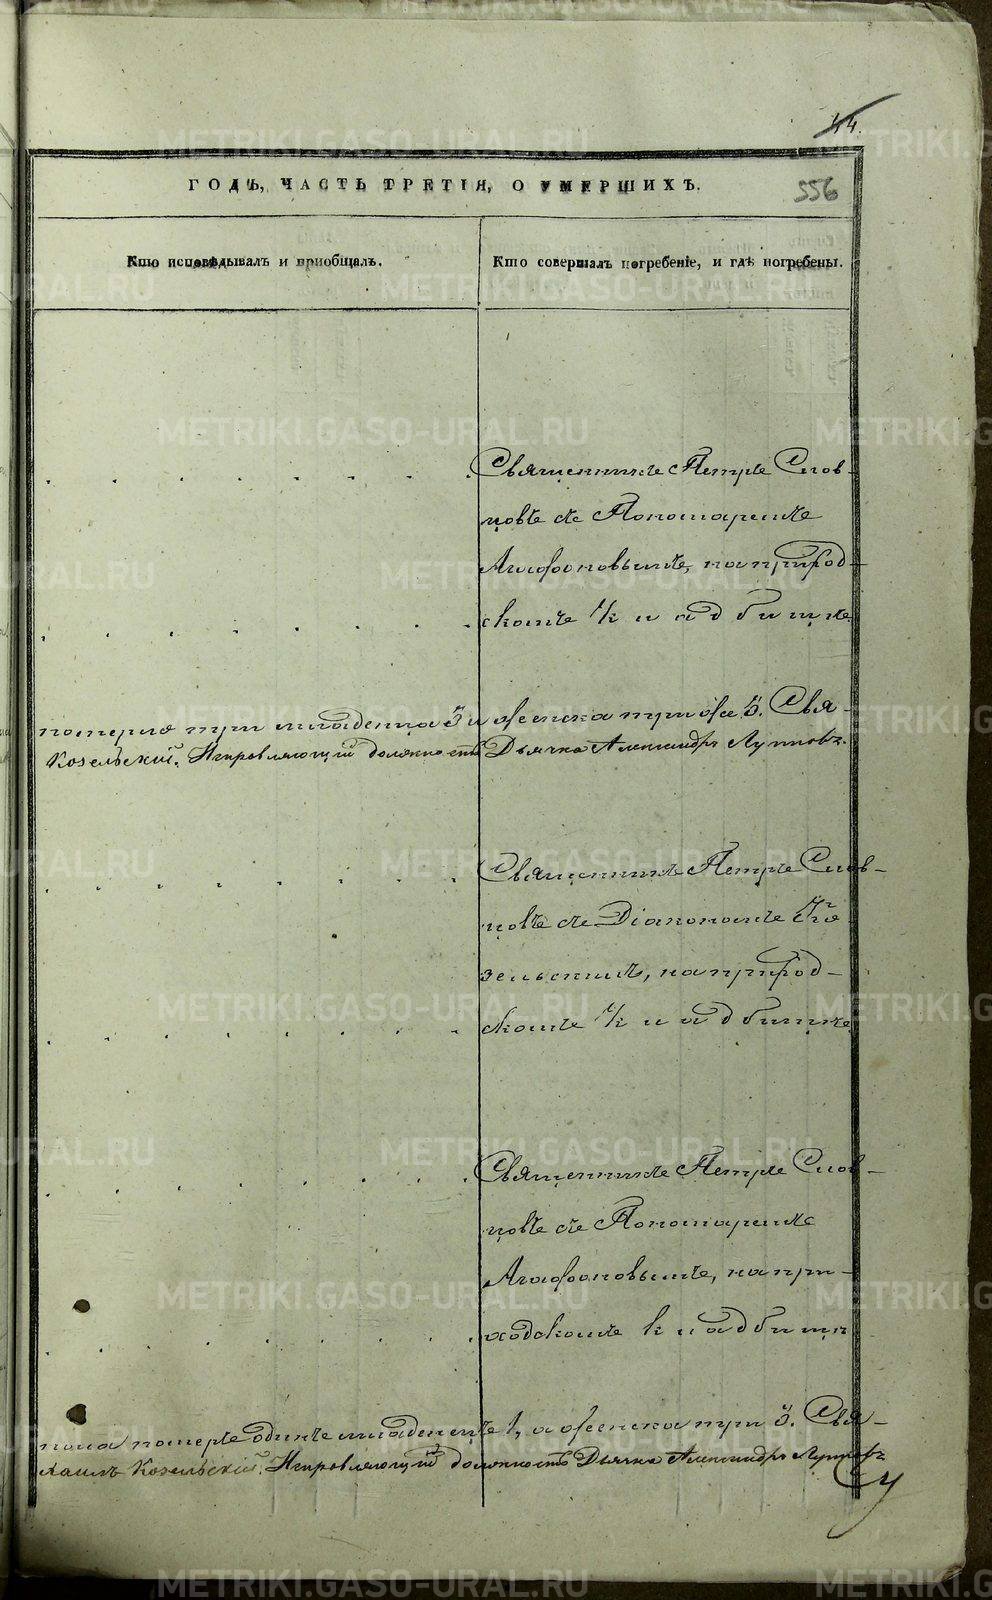 44.
ГОДЪ, ЧАСТЬ ТРЕТІЯ, О УМЕРШИХЪ.
556
Кто исповѣдывалъ и пріобщалъ.
Кто совершалъ погребеніе, и гдѣ погребены.
Священникъ Петръ Слов-
цовъ съ Пономаремъ
Агафоновымъ, на приход-
скомъ кладбищѣ
померло три младенца 3 и женска три же 3. Свя-
Козельскій. Исправляющій должность Дьячка Александръ Лупповъ.
Священникъ Петръ Слов-
цовъ съ Діакономъ Ко
зельскимъ, на приход-
скомъ кладбищѣ
Священникъ Петръ Слов-
цовъ съ Пономаремъ
Агафоновымъ, на при-
ходскомъ кладбищѣ
пола померъ одинъ младенецъ 1, а женска три 3. Свя-
хаилъ Козельскій. Исправляющій должность Дьячка Александръ Лупповъ
METRIKI.GASO-URAL.RU